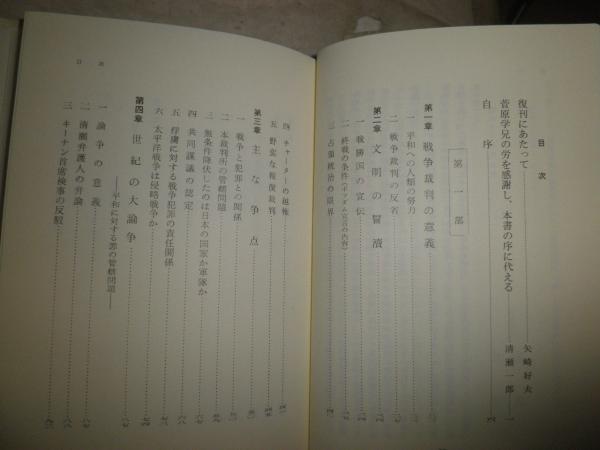 目次
復刊にあたって 矢崎好夫
菅原学兄の労を感謝し、本書の序に代える 清瀬一郎 一
自序 六
第一部
第一章 戦争裁判の意義
一 平和への人類の努力
二 戦争裁判の反省
第二章 文明の冒瀆
一 戦勝国の宣伝
二 終戦の条件(ポツダム宣言の内容)
三 占領統治の限界
四 チャーターの越権
五 野蛮な報復裁判
第三章 主な争点
一 戦争と犯罪との関係
二 本裁判所の管轄問題
三 無条件降伏したのは日本の国家か軍隊か
四 共同謀議の認定
五 俘虜に対する戦争犯罪の責任関係
六 太平洋戦争は侵略戦争か
第四章 世紀の大論争
――平和に対する罪の管轄問題――
一 論争の意義
二 清瀬弁護人の弁論
三 キーナン首席検事の反駁
目次